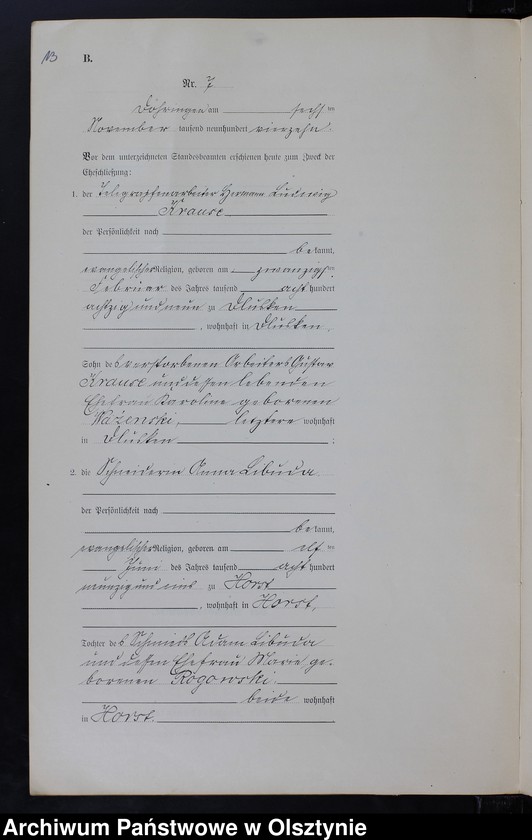 B.
Nr. 7
Döhringen am sechs ten
November tausend neunhundert vierzehn.
Vor dem unterzeichneten Standesbeamten erschienen heute zum Zweck der
Eheschließung:
1. der Telegraphenarbeiter Hermann Ludwig
Krause
der Persönlichkeit nach
be kannt,
evangelischer Religion, geboren am zwanzigsten
Februar des Jahres tausend acht hundert
achtzig und neun zu Dlusken
, wohnhaft in Dlusken,
Sohn des verstorbenen Arbeiters Gustav
Krause und dessen lebenden
Ehefrau Karoline geborenen
letztere wohnhaft
in Dlusken ;
2. die Schneiderin Anna Libuda
der Persönlichkeit nach
be kannt,
evangelischer Religion, geboren am elf ten
Juni des Jahres tausend acht hundert
neunzig und eins zu Horst
, wohnhaft in Horst,
Tochter des Schmieds Adam Libuda
und dessen Ehefrau Marie ge-
borenen Rogowski.
beide wohnhaft
in Horst.
Archiwum Państwowe w Olsztynie